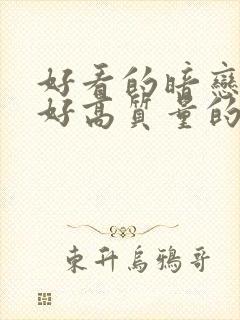 好看的暗戀
好高质量的
東升烏鴉哥